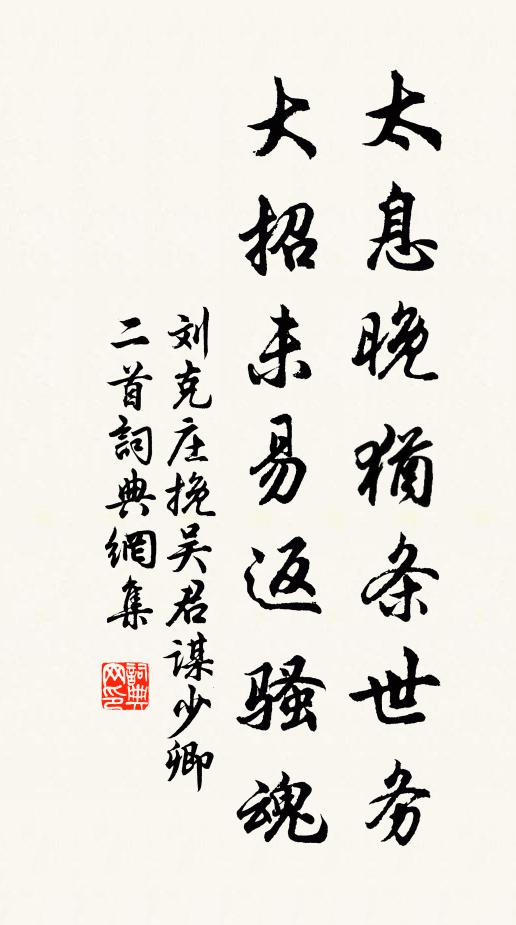 太息晚猶条世务
大招未易返骚魂
刘克庄挽吴君谋少卿
二首詞典網集
詞典网印